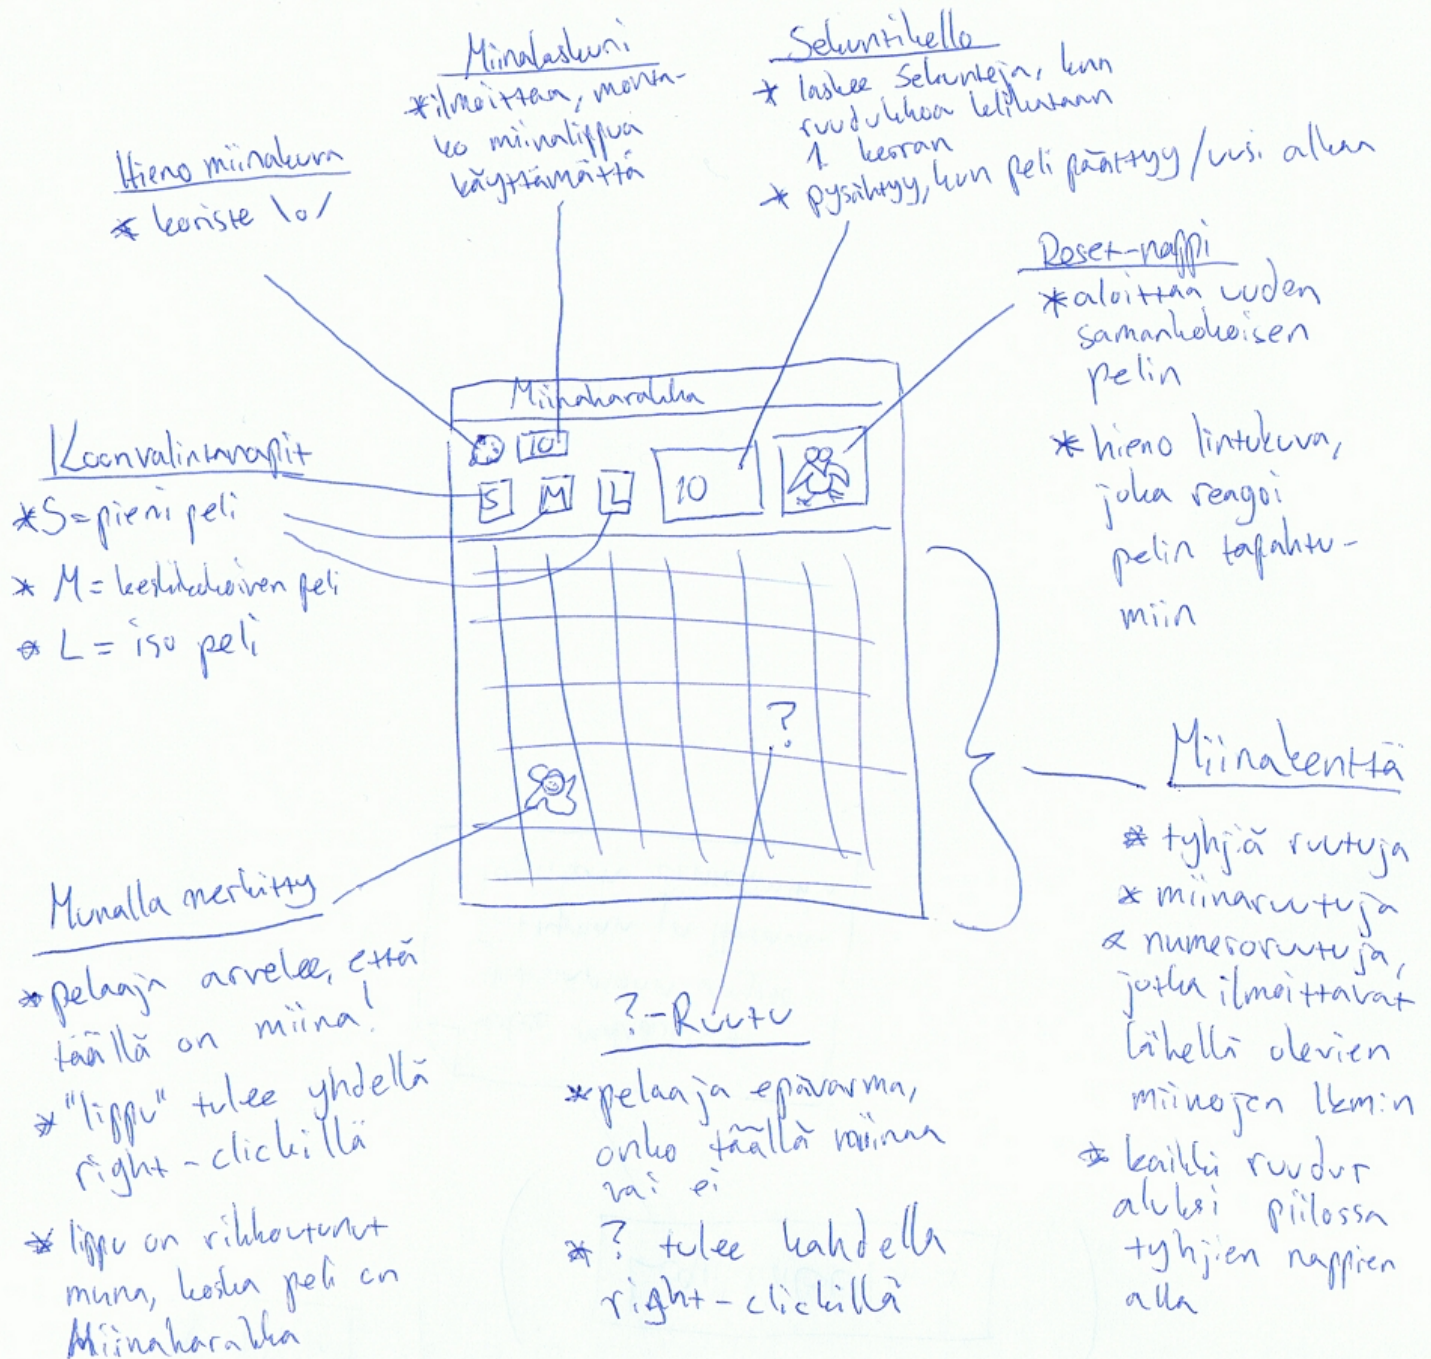 Miinalaskuri
*ilmoittaa, monta-
ko miinalippua
käyttämättä
Sekuntikello
* laskee sekunteja, kun
ruudukkoa klikataan
1. kerran
* pysähtyy, kun peli päättyy/uusi alkaa
Hieno miinakuva
* koriste \o/
Reset-nappi
*aloittaa uuden
samankokoisen
pelin
* hieno lintukuva,
joka reagoi
pelin tapahtu-
miin
Miinaharakka
10
S M L
10
Koonvalintanapit
*S=pieni peli
* M=keskikokoinen peli
* L = iso peli
?
Miinakenttä
* tyhjiä ruutuja
* miinaruutuja
* numeroruutuja,
jotka ilmoittavat
lähellä olevien
miinojen lkm:n
* kaikki ruudut
aluksi piilossa
tyhjien nappien
alla
Munalla merkitty
*pelaaja arvelee, että
täällä on miina!
* "lippu" tulee yhdellä
right-clickillä
* lippu on rikkoutunut
muna, koska peli on
Miinaharakka
?-Ruutu
*pelaaja epävarma,
onko täällä miinaa
vai ei
* ? tulee kahdella
right-clickillä